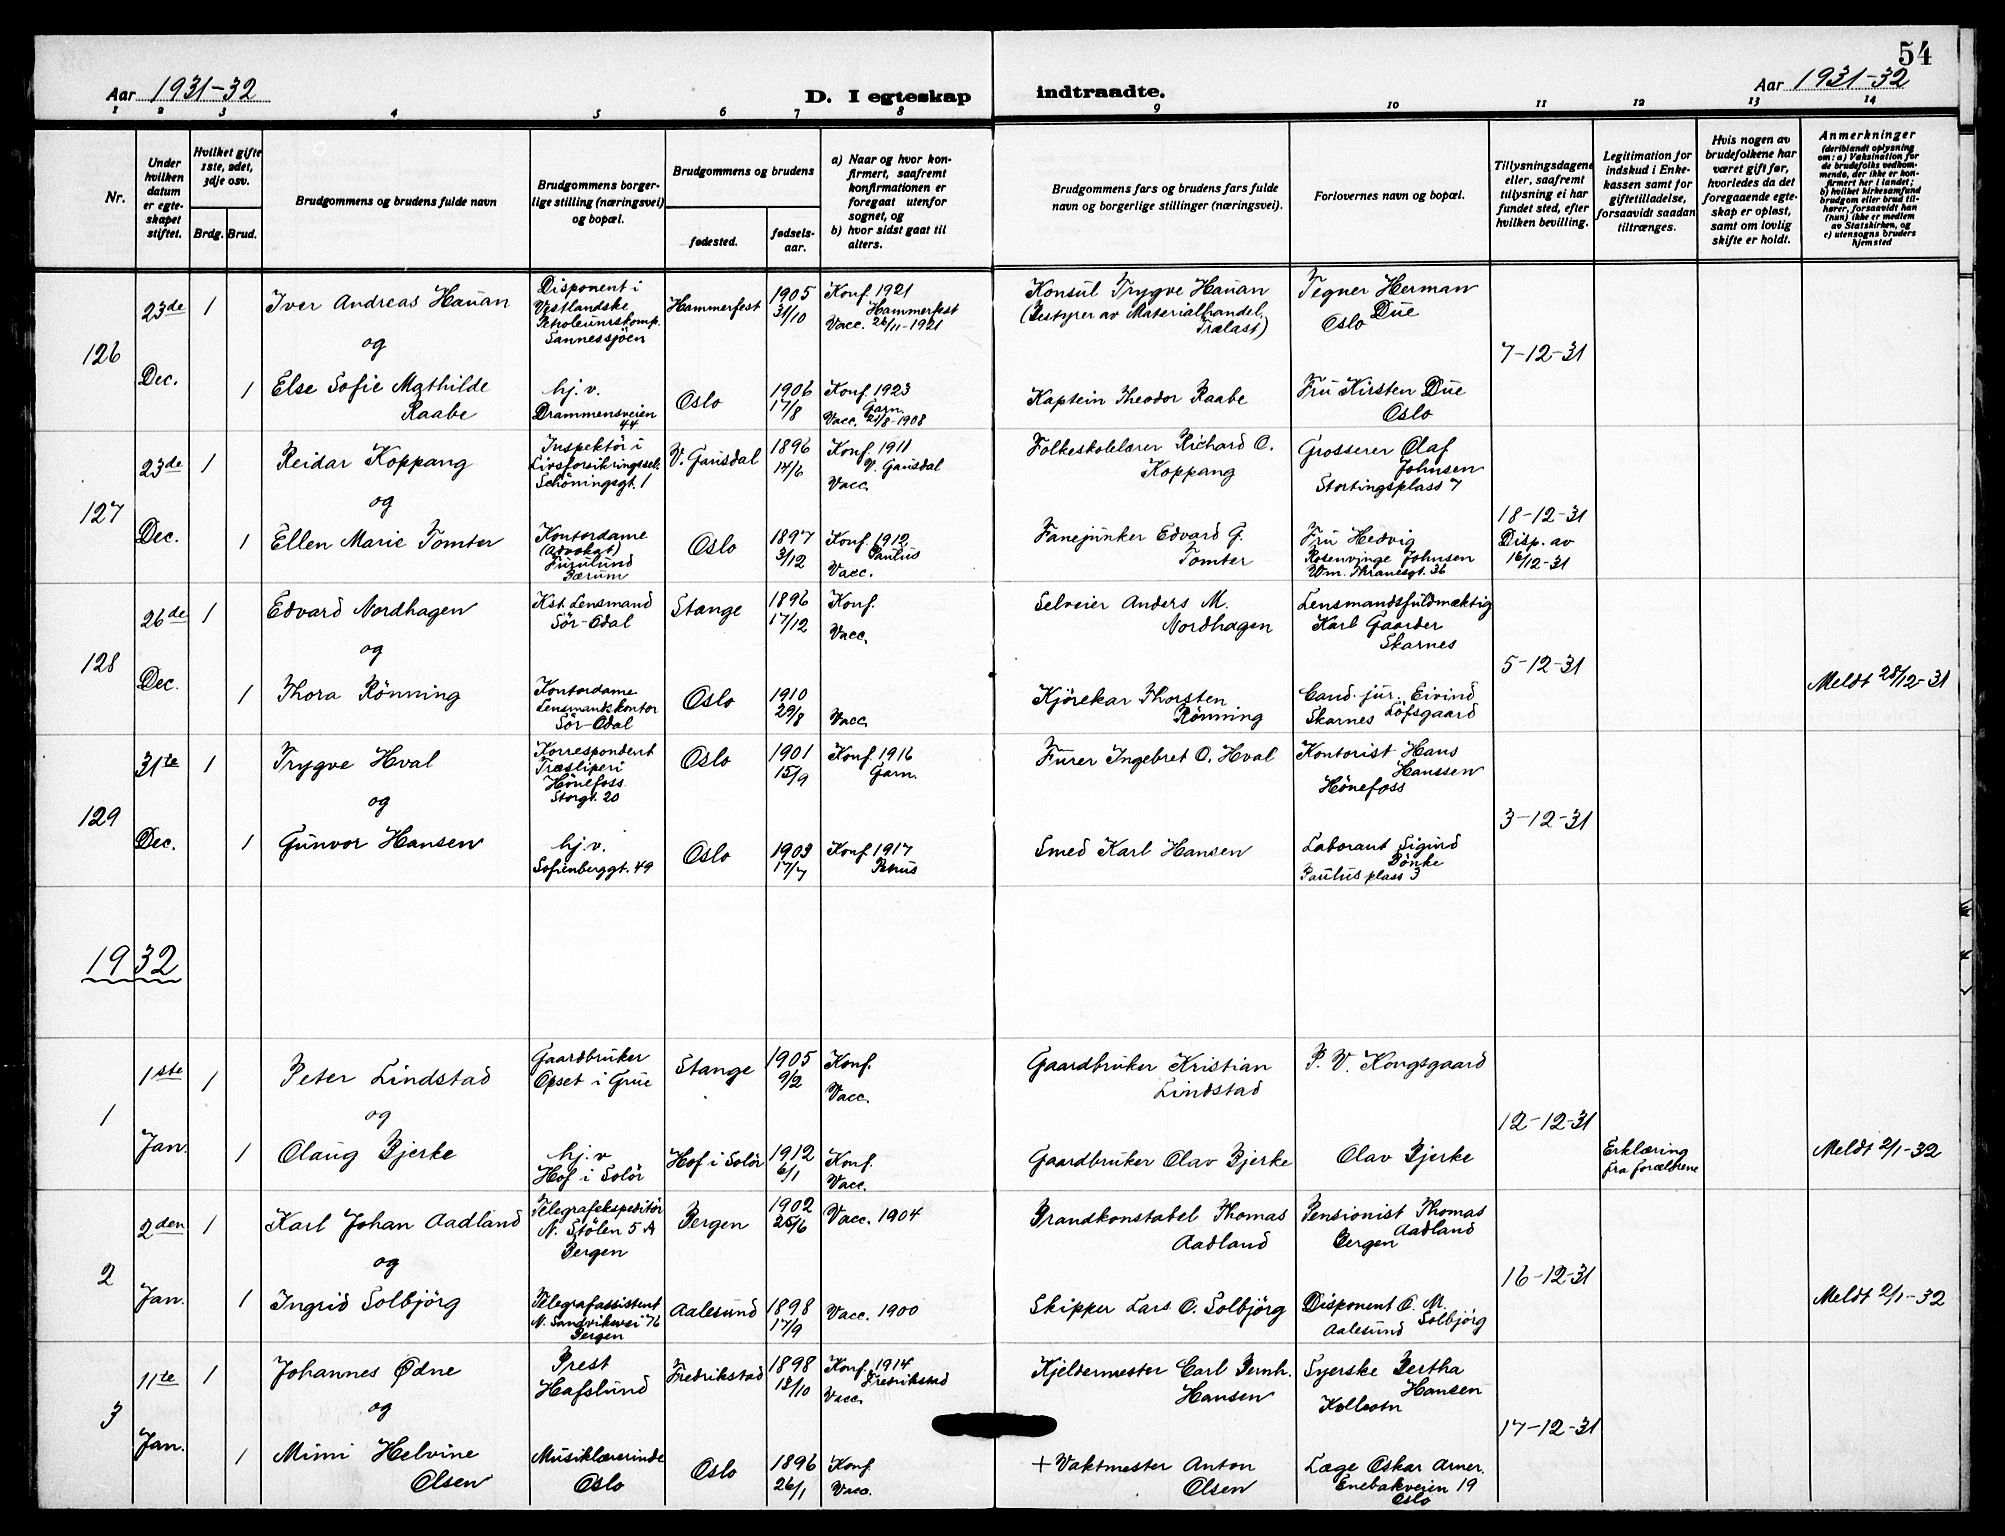 54
Aar 1931-32
D. I egteskap indtraadte.
Aar 1931-32
1 2 3 4 5 6 7 8 9 10 11 12 13 14
Nr.
Under hvilken datum er egteskapet stiftet.
Hvilket gifte 1ste, 2det, 3dje osv.
Brdg. Brud.
Brudgommens og brudens fulde navn
Brudgommens borgerlige stilling (næringsvei) og bopæl.
Brudgommens og brudens
fødested.
fødselsaar.
a) Naar og hvor konfirmert, saafremt konfirmationen er foregaat utenfor sognet, og
b) hvor sidst gaat til alters.
Brudgommens fars og brudens fars fulde navn og borgerlige stillinger (næringsvei).
Forlovernes navn og bopæl.
Tillysningsdagene eller, saafremt tillysning ei har fundet sted, efter hvilken bevilling.
Legitimation for indskud i Enkekassen samt for giftetilladelse, forsaavidt saadan tiltrænges.
Hvis nogen av brudefolkene har været gift før, hvorledes da det foregaaende egteskap er opløst, samt om lovlig skifte er holdt.
Anmerkninger (deriblandt oplysning om: a) Vaksination for de brudefolks vedkommende, der ikke er konfirmert her i landet; b) hvilket kirkesamfund brudgom eller brud tilhører, forsaavidt han (hun) ikke er medlem av Statskirken, og c) utensogns bruders hjemsted
126
23de Dec.
1
Iver Andreas Hauan
Disponent i
Vestlandske
Petroleumskomp.
Sannessjøen
Hammerfest
1905
31/10
Konf. 1921
Hammerfest
Vacc. 26/11-1921
Konsul Trygve Hauan
(Bestyrer av Materialhandel,
Trælast)
Tegner Herman
Due
Oslo
7-12-31
og
1
Else Sofie Mathilde
Raabe
hj. v.
Drammensveien
44
Oslo
1906
17/8
Konf. 1923
Garn.
Vacc. 21/8-1908
Kaptein Theodor Raabe
Fru Kirsten Due
Oslo
127
23de Dec.
1
Reidar Koppang
Inspektör i
Livsforsikringssel.
Schöningsgt. 1
V. Gausdal
1896
14/6
Konf. 1911
V. Gausdal
Vacc.
Folkeskolelærer Richard O.
Koppang
Grosserer Olaf
Johnsen
Stortingsplass 7
18-12-31
Disp. av
16/12-31
og
1
Ellen Marie Tomter
Kontordame
(Advokat)
Furulund
Bærum
Oslo
1897
3/12
Konf. 1912
Paulus
Vacc.
Fanejunker Edvard G.
Tomter
Fru Hedvig
Rosenvinge Johnsen
Wm. Thranesgt. 36
128
26de Dec.
1
Edvard Nordhagen
Kst. Lensmand
Sör-Odal
Stange
1896
17/12
Konf.
Vacc.
Selveier Anders M.
Nordhagen
Lensmandsfuldmæktig
Karl Gaarder
Skarnes
5-12-31
Meldt 28/12-31
og
1
Thora Rönning
Kontordame
Lensmandskontor
Sör-Odal
Oslo
1910
29/8
Vacc.
Kjörekar Thorsten
Rönning
Cand. jur. Eivind
Skarnes Löfsgaard
129
31te Dec.
1
Trygve Hval
Korrespondent
Træsliperi
Hönefoss
Storgt. 20
Oslo
1901
15/9
Konf. 1916
Garn.
Furer Ingebret O. Hval
Kontorist Hans
Hanssen
Hönefoss
3-12-31
og
1
Gunvor Hansen
hj. v.
Sofienberggt. 49
Oslo
1903
17/7
Konf. 1917
Petrus
Smed Karl Hansen
Laborant Sigurd
Bönke
Paulus plass 3
1932
1
1ste Jan.
1
Peter Lindstad
Gaardbruker
Opset i Grue
Stange
1905
9/2
Konf.
Vacc.
Gaardbruker Kristian
Lindstad
P. V. Kongsgaard
12-12-31
og
1
Olaug Bjerke
hj. v
Hof i Solör
Hof i Solör
1912
6/1
Konf.
Vacc.
Gaardbruker Olav Bjerke
Olav Bjerke
Erklæring
fra forældrene
Meldt 2/1-32
2
2den Jan.
1
Karl Johan Aadland
Telegrafekspeditör
N. Stölen 5 A
Bergen
Bergen
1902
25/6
Vacc. 1904
Brandkonstabel Thomas
Aadland
Pensionist Thomas
Aadland
Bergen
16-12-31
og
1
Ingrid Solbjörg
Telegrafassistent
N. Sandviksvei 76
Bergen
Aalesund
1898
17/9
Vacc. 1900
Skipper Lars O. Solbjörg
Disponent O. M.
Solbjörg
Aalesund
Meldt 2/1-32
3
11te Jan.
1
Johannes Ødne
Prest
Hafslund
Fredrikstad
1898
15/10
Konf. 1914
Fredrikstad
Vacc.
Kjeldermester Carl Bernh.
Hansen
Syerske Bertha
Hansen
Kolbotn
17-12-31
og
1
Mimi Helvine
Olsen
Musiklærerinde
Oslo
Oslo
1896
26/1
Konf.
Vacc.
+ Vaktmester Anton
Olsen
Læge Oskar Arner.
Enebakveien 19
Oslo